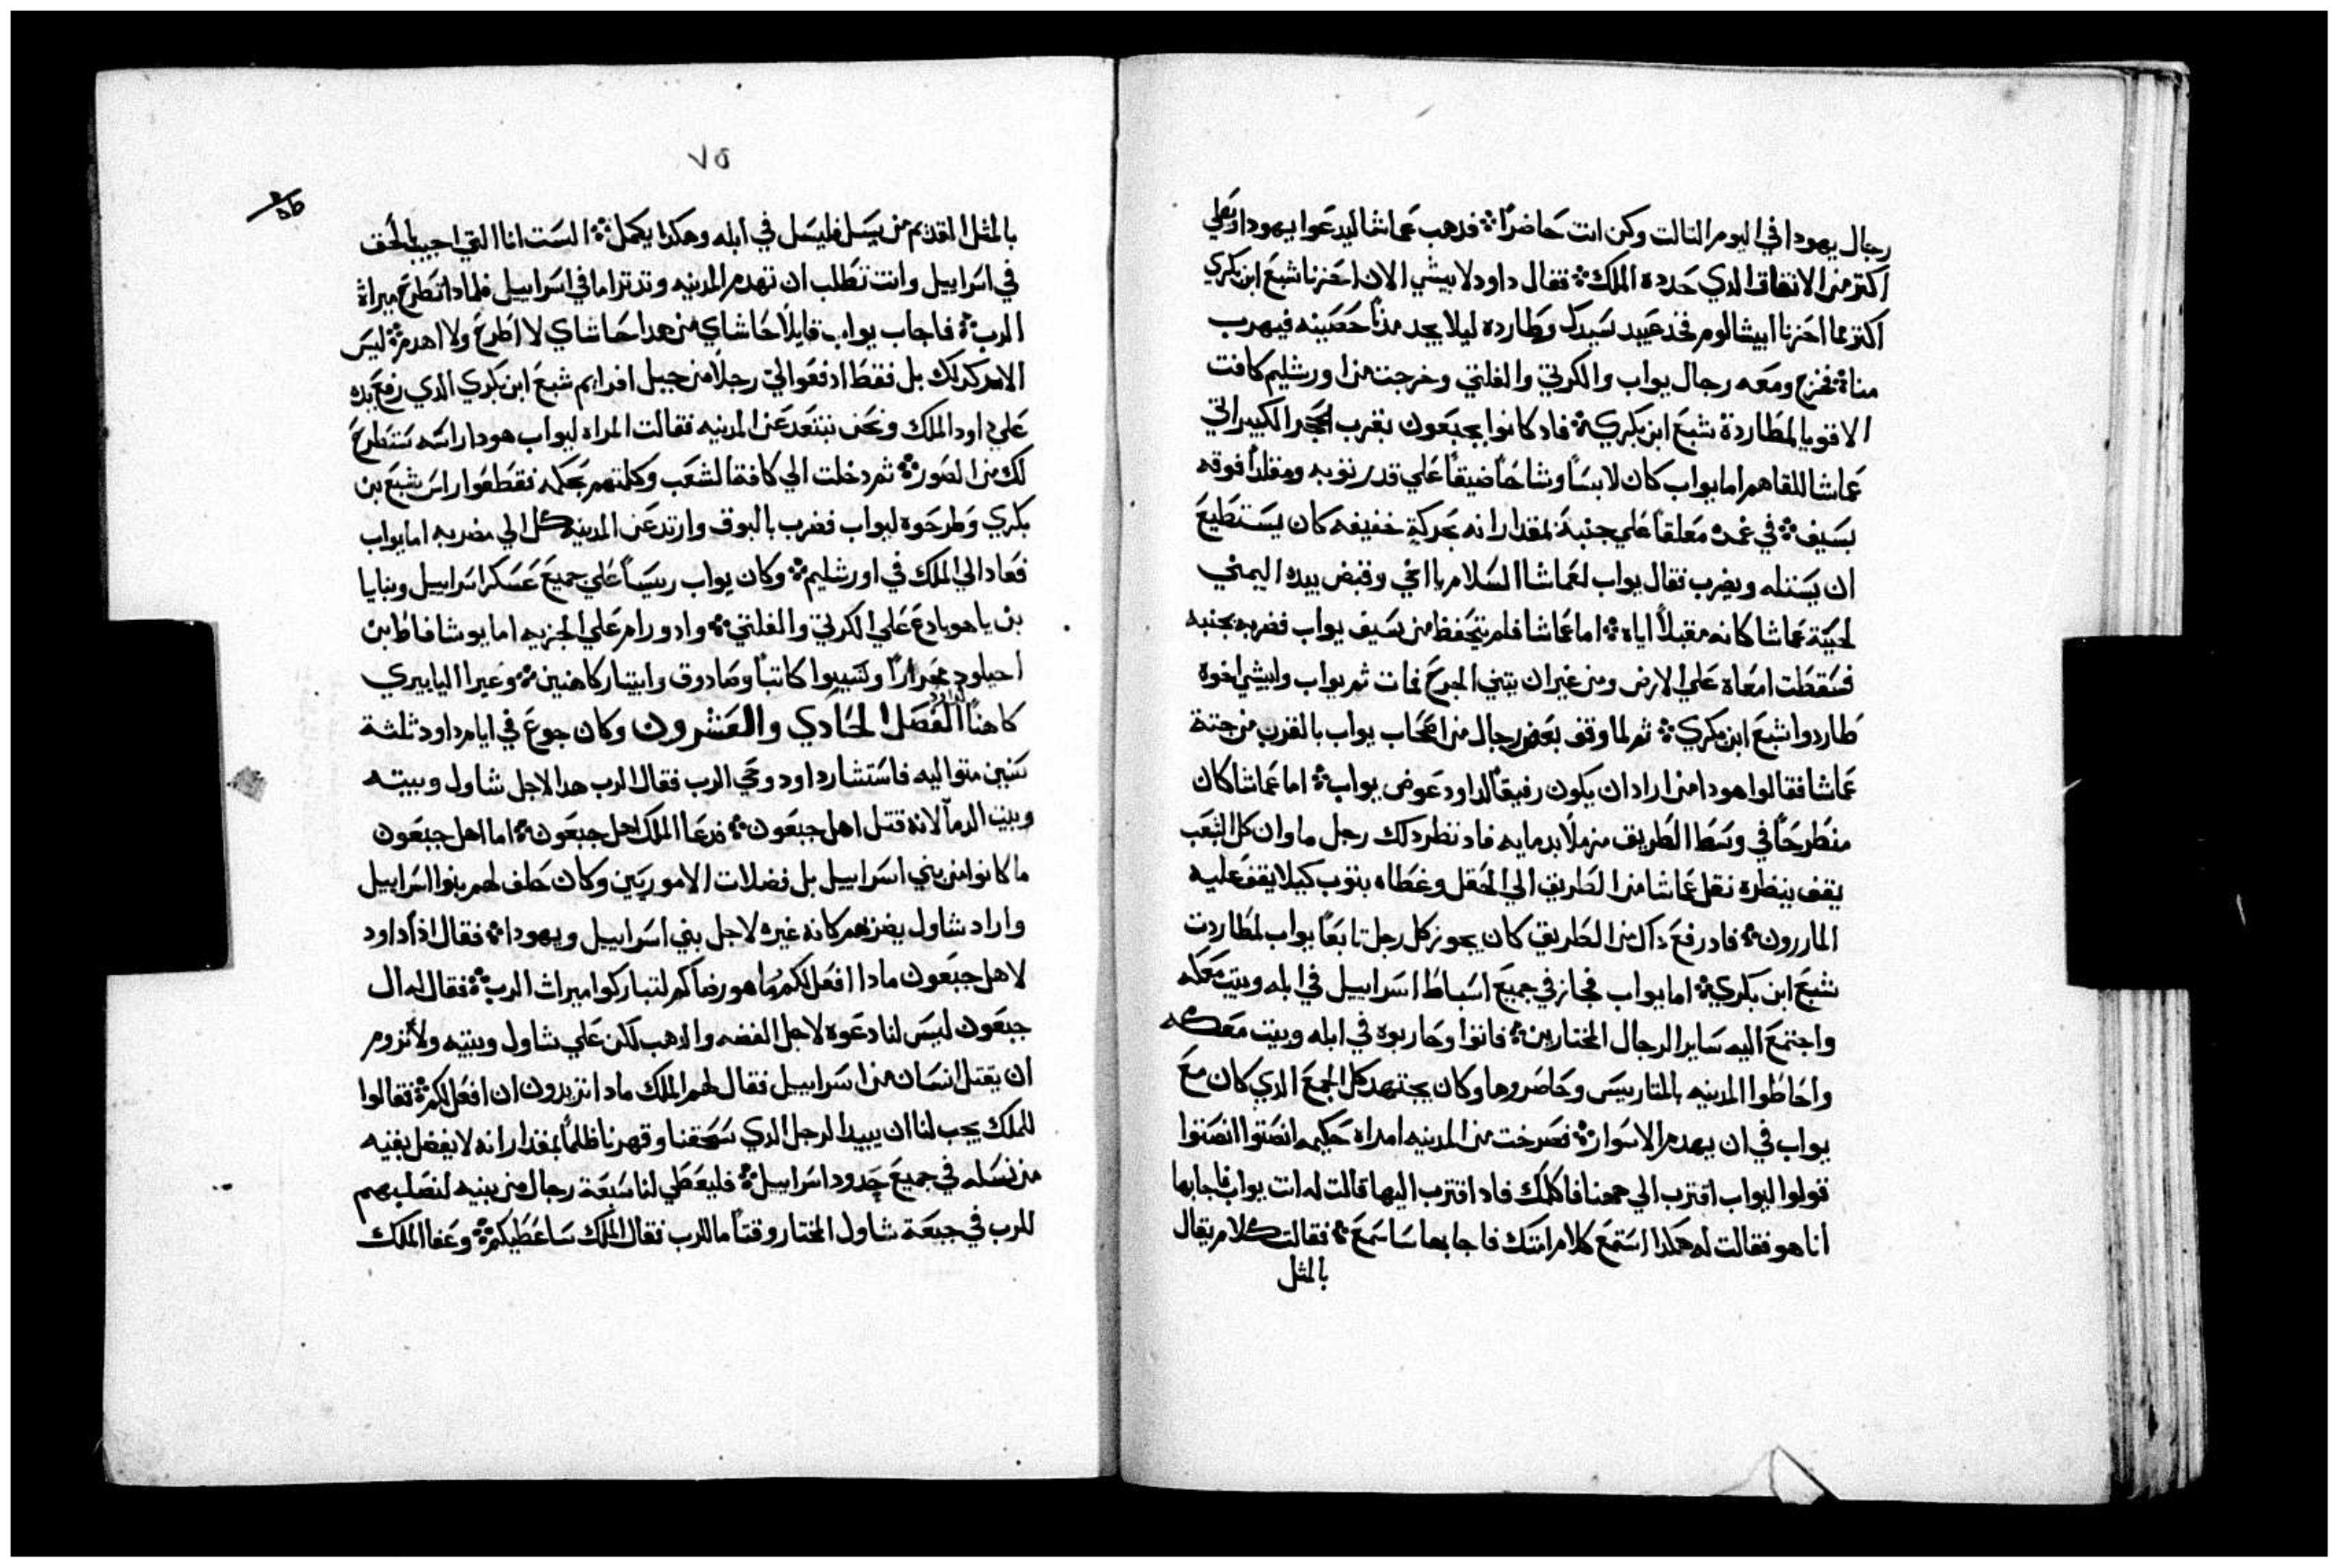 رجال يهودا في اليوم التالت وكن انت حاضرًا فدهب عماشا ليدعوا يهودا وبطي
اكتر من الاتفاق الدي حدده الملك فقال داود لابيشي الان احزنا شبع ابن بكري
اكتر مما احزنا ابيشالوم فخد عبيد سيدك وطارده ليلا يجد مدنًا حصينه فيهرب
مناه فخرج ومعه رجال يواب والكرتي والفلتي وخرجت من اورشليم كافت
الاقويا لمطاردة شبع ابن بكري فاد كانوا بجبعون بقرب الحجر الكبير اتي
عماشا للقاهم اما يواب كان لابسًا وشاحًا ضيقًا علي قدر توبه ومقلدًا فوقه
بسيف في غمده معلقًا علي جنبه بمقدار انه بحركة خفيفه كان يستطيع
ان يستله ويضرب فقال يواب لعماشا السلام يا اخي وقبض بيده اليمني
لحية عماشا كانه مقبلًا اياه اما عماشا فلم يتحفظ من سيف يواب فضربه بجنبه
فسقطت امعاه علي الارض ومن غير ان يتني الجرح فمات تم يواب وابيشي اخوه
طاردوا شبع ابن بكري تم لما وقف بعض رجال من اصحاب يواب بالقرب من جتة
عماشا فقالوا هودا من اراد ان يكون رفيقًا لداود عوض يواب اما عماشا كان
منطرحًا في وسط الطريق مزملًا بدمايه فاد نظر دلك رجل ما وان كل الشعب
يقف ينظره نقل عماشا من الطريق الي الحقل وغطاه بتوب كيلا يقف عليه
المارون فاد رفع داك من الطريق كان يجوز كل رجل تابعًا يواب لمطاردت
شبع ابن بكري اما يواب فجاز في جميع اسباط اسراييل في ابله وبيت معكه
واجتمع اليه ساير الرجال المختارين فاتوا وحاربوه في ابله وبيت معكه
واحاطوا المدينه بالمتاريس وحاصروها وكان يجتهد كل الجمع الدي كان مع
يواب في ان يهدم الاسوار فصرخت من المدينه امراه حكيمه انصتوا انصتوا
قولوا ليواب اقترب الي ههنا فاكلمك فاد اقترب اليها قالت له انت يواب فاجابها
انا هو فقالت له هكدا استمع كلام امتك فاجابها ساسمع فقالت كلام يقال
بالمثل
٧٥
بالمثل القديم من يسل فليسل في ابله وهكدا يكمل الست انا التي اجيب بالحق
في اسراييل وانت تطلب ان تهدم المدينه وتدتر اما في اسراييل فلمادا تطرح ميراث
الرب فاجاب يواب قايلًا حاشاي من هدا حاشاي لا اطرح ولا اهدم ليس
الامر كدلك بل فقط ادفعوا لي رجلًا من جبل افرايم شبع ابن بكري الدي رفع يده
علي داود الملك ونحن نبتعد عن المدينه فقالت المراه ليواب هودا راسه ستطرح
لك من الصور تم دخلت الي كافة الشعب وكلمتهم بحكمه فقطعوا راس شبع بن
بكري وطرحوه ليواب فضرب بالبوق وارتد عن المدينه كل الي مضربه اما يواب
فعاد الي الملك في اورشليم وكان يواب رييسًا علي جميع عسكر اسراييل وبنايا
بن ياهويادع علي الكرتي والفلتي وادورام علي الجزيه اما يوشافاط ابن
احيلود مخبرًا وشيوا كاتبًا وصادوق وابيتار كاهنين وعيرا اليابيري
كاهنًا لداود الفصل الحادي والعشرون وكان جوع في ايام داود ثلثة
سنين متواليه فاستشار داود وحي الرب فقال الرب هدا لاجل شاول وبيته
وبيت الدمآ لانه قتل اهل جبعون فدعا الملك اهل جبعون اما اهل جبعون
ما كانوا من بني اسراييل بل فضلات الاموريين وكان حلف لهم بنوا اسراييل
واراد شاول يضربهم كانه غيره لاجل بني اسراييل ويهودا فقال اذًا داود
لاهل جبعون مادا افعل لكم وما هو رضاكم لتباركوا ميراث الرب فقال له ال
جبعون ليس لنا دعوه لاجل الفضه والدهب لكن علي شاول وبيته ولا نروم
ان يقتل انسان من اسراييل فقال لهم الملك مادا تريدون ان افعل لكم فقالوا
للملك يجب لنا ان يبيد الرجل الدي سحقنا وقهرنا ظلمًا بمقدار انه لا يفضل بقيه
من نسله في جميع حدود اسراييل فليعطي لنا سبعة رجال من بنيه لنصلبهم
للرب في جبعة شاول المختار وقتًا ما للرب فقال الملك ساعطيكم وعفا الملك